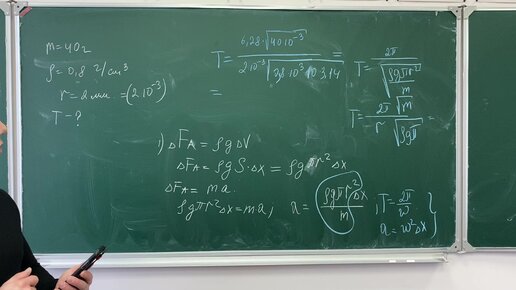 m = 40г
ρ = 0,8 г/см³
r = 2 мм. = (2·10⁻³)
T - ?
T = 6,28·√(40·10⁻³) / 2·10⁻³ √(0,8·10³·10·3,14) =
=
T = 2π / √(ρgπr² / m)
T = 2π √m / r √(ρgπ) =
1) ΔF_A = ρgΔV
ΔF_A = ρgS·Δx = ρgπr² Δx
ΔF_A = ma.
ρgπr²Δx = ma, a = ρgπr²Δx / m ; T = 2π / ω
a = ω²Δx }